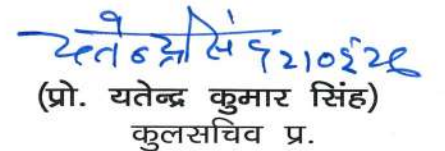 (प्रो. यतेन्द्र कुमार सिंह)
कुलसचिव प्र.